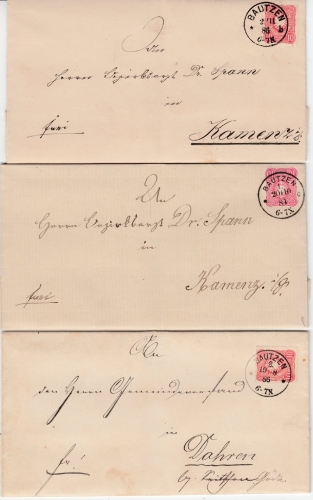 BAUTZEN
86
6-7N
An
Herrn Bezirksarzt Dr. Spann
in
frei
Kamenz
BAUTZEN
6-7N
An
Herrn Bezirksarzt Dr. Spann
in
Kamenz
frei
BAUTZEN
86
6-7N
An
den Herrn Gemeindevorstand
in
Dahren
fr.